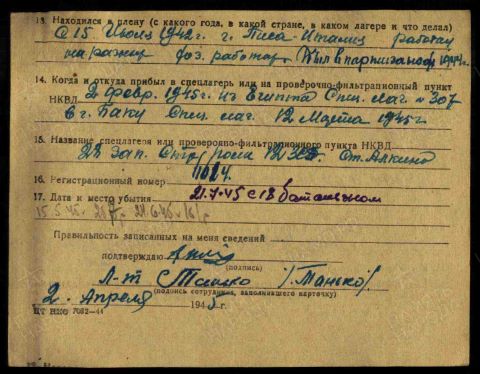 13. Находился в плену (с какого года, в какой стране, в каком лагере и что делал)
С 15 Июля 1942г. г. Пиза-Италия работал
на разных хоз. работах. Был в партизанах 1944г.
14. Когда и откуда прибыл в спецлагерь или на проверочно-фильтрапионный пункт
НКВД 2 февр. 1945г. из Египта Спец. лаг. № 307
в г. Баку Спец. лаг. 12 Марта 1945г.
15. Название спецлагеря или проверочно-фильтрапионного пункта НКВД
23 зап. Стр. рота 12 ЗСД. Ст. Алкино
16. Регистрационный номер
17. Дата и место убытия 21.7.45 с 13 батальоном
15.5.45.
Правильность записанных на меня сведений
подтверждаю
(подпись)
Л-т Танько /Танько/
(подпись сотрудника, заполнявшего карточку)
2. Апреля 1945г.
ЦТ НКО 7082-44